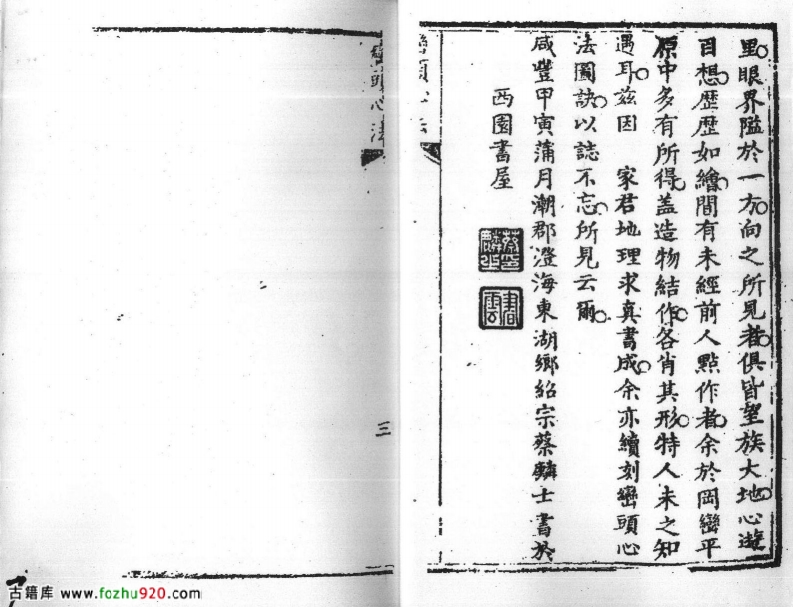 里眼界隘於一方向之所見者俱皆望族大地心遊
目想歷歷如繪間有未經前人點作者余於岡巒平
原中多有所得蓋造物結作各肖其形特人未之知
遇耳茲因 家君地理求真書成余亦續刻巒頭心
法圖訣以誌不忘所見云爾
咸豐甲寅蒲月潮郡澄海東湖鄉紹宗蔡麟士書於
西園書屋
巒頭心法
三
古籍库 www.fozhu920.com